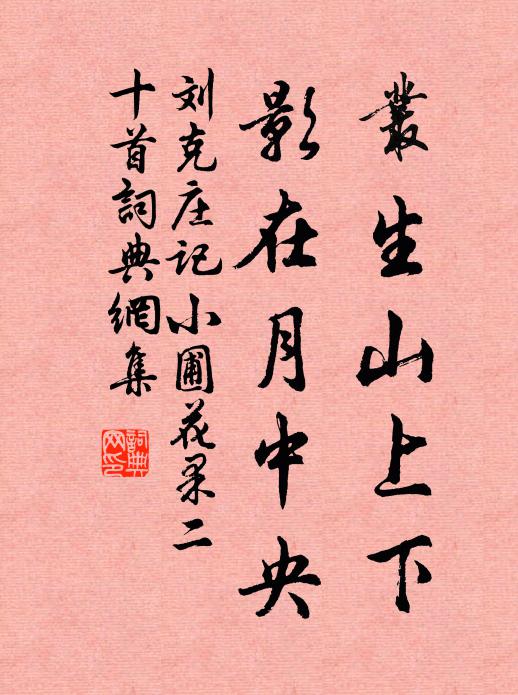 叢生山上下
影在月中央
刘克庄记小圃花果二
十首詞典網集
詞典網印